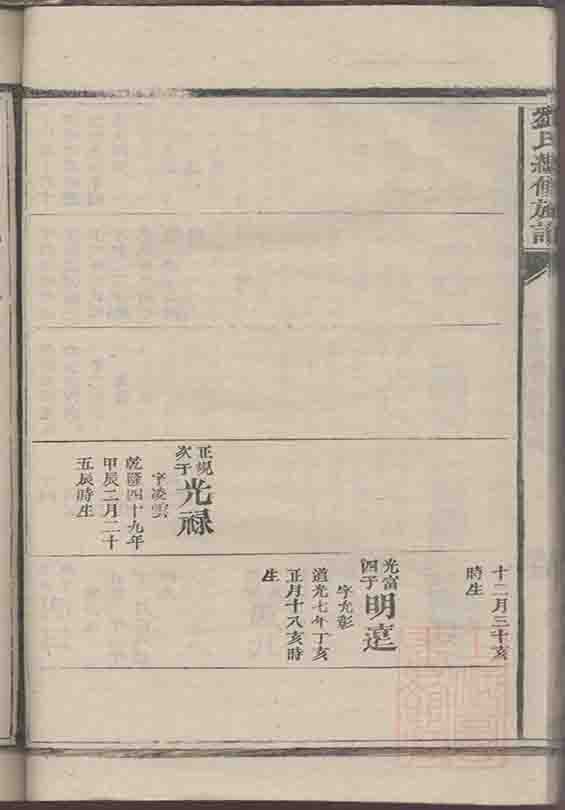 劉氏續修族譜
十二月三十亥
時生
光富
四子
明遠
字允彰
道光七年丁亥
正月十八亥時
生
正規
次子
光祿
字淩雲
乾隆四十九年
甲辰二月二十
五辰時生